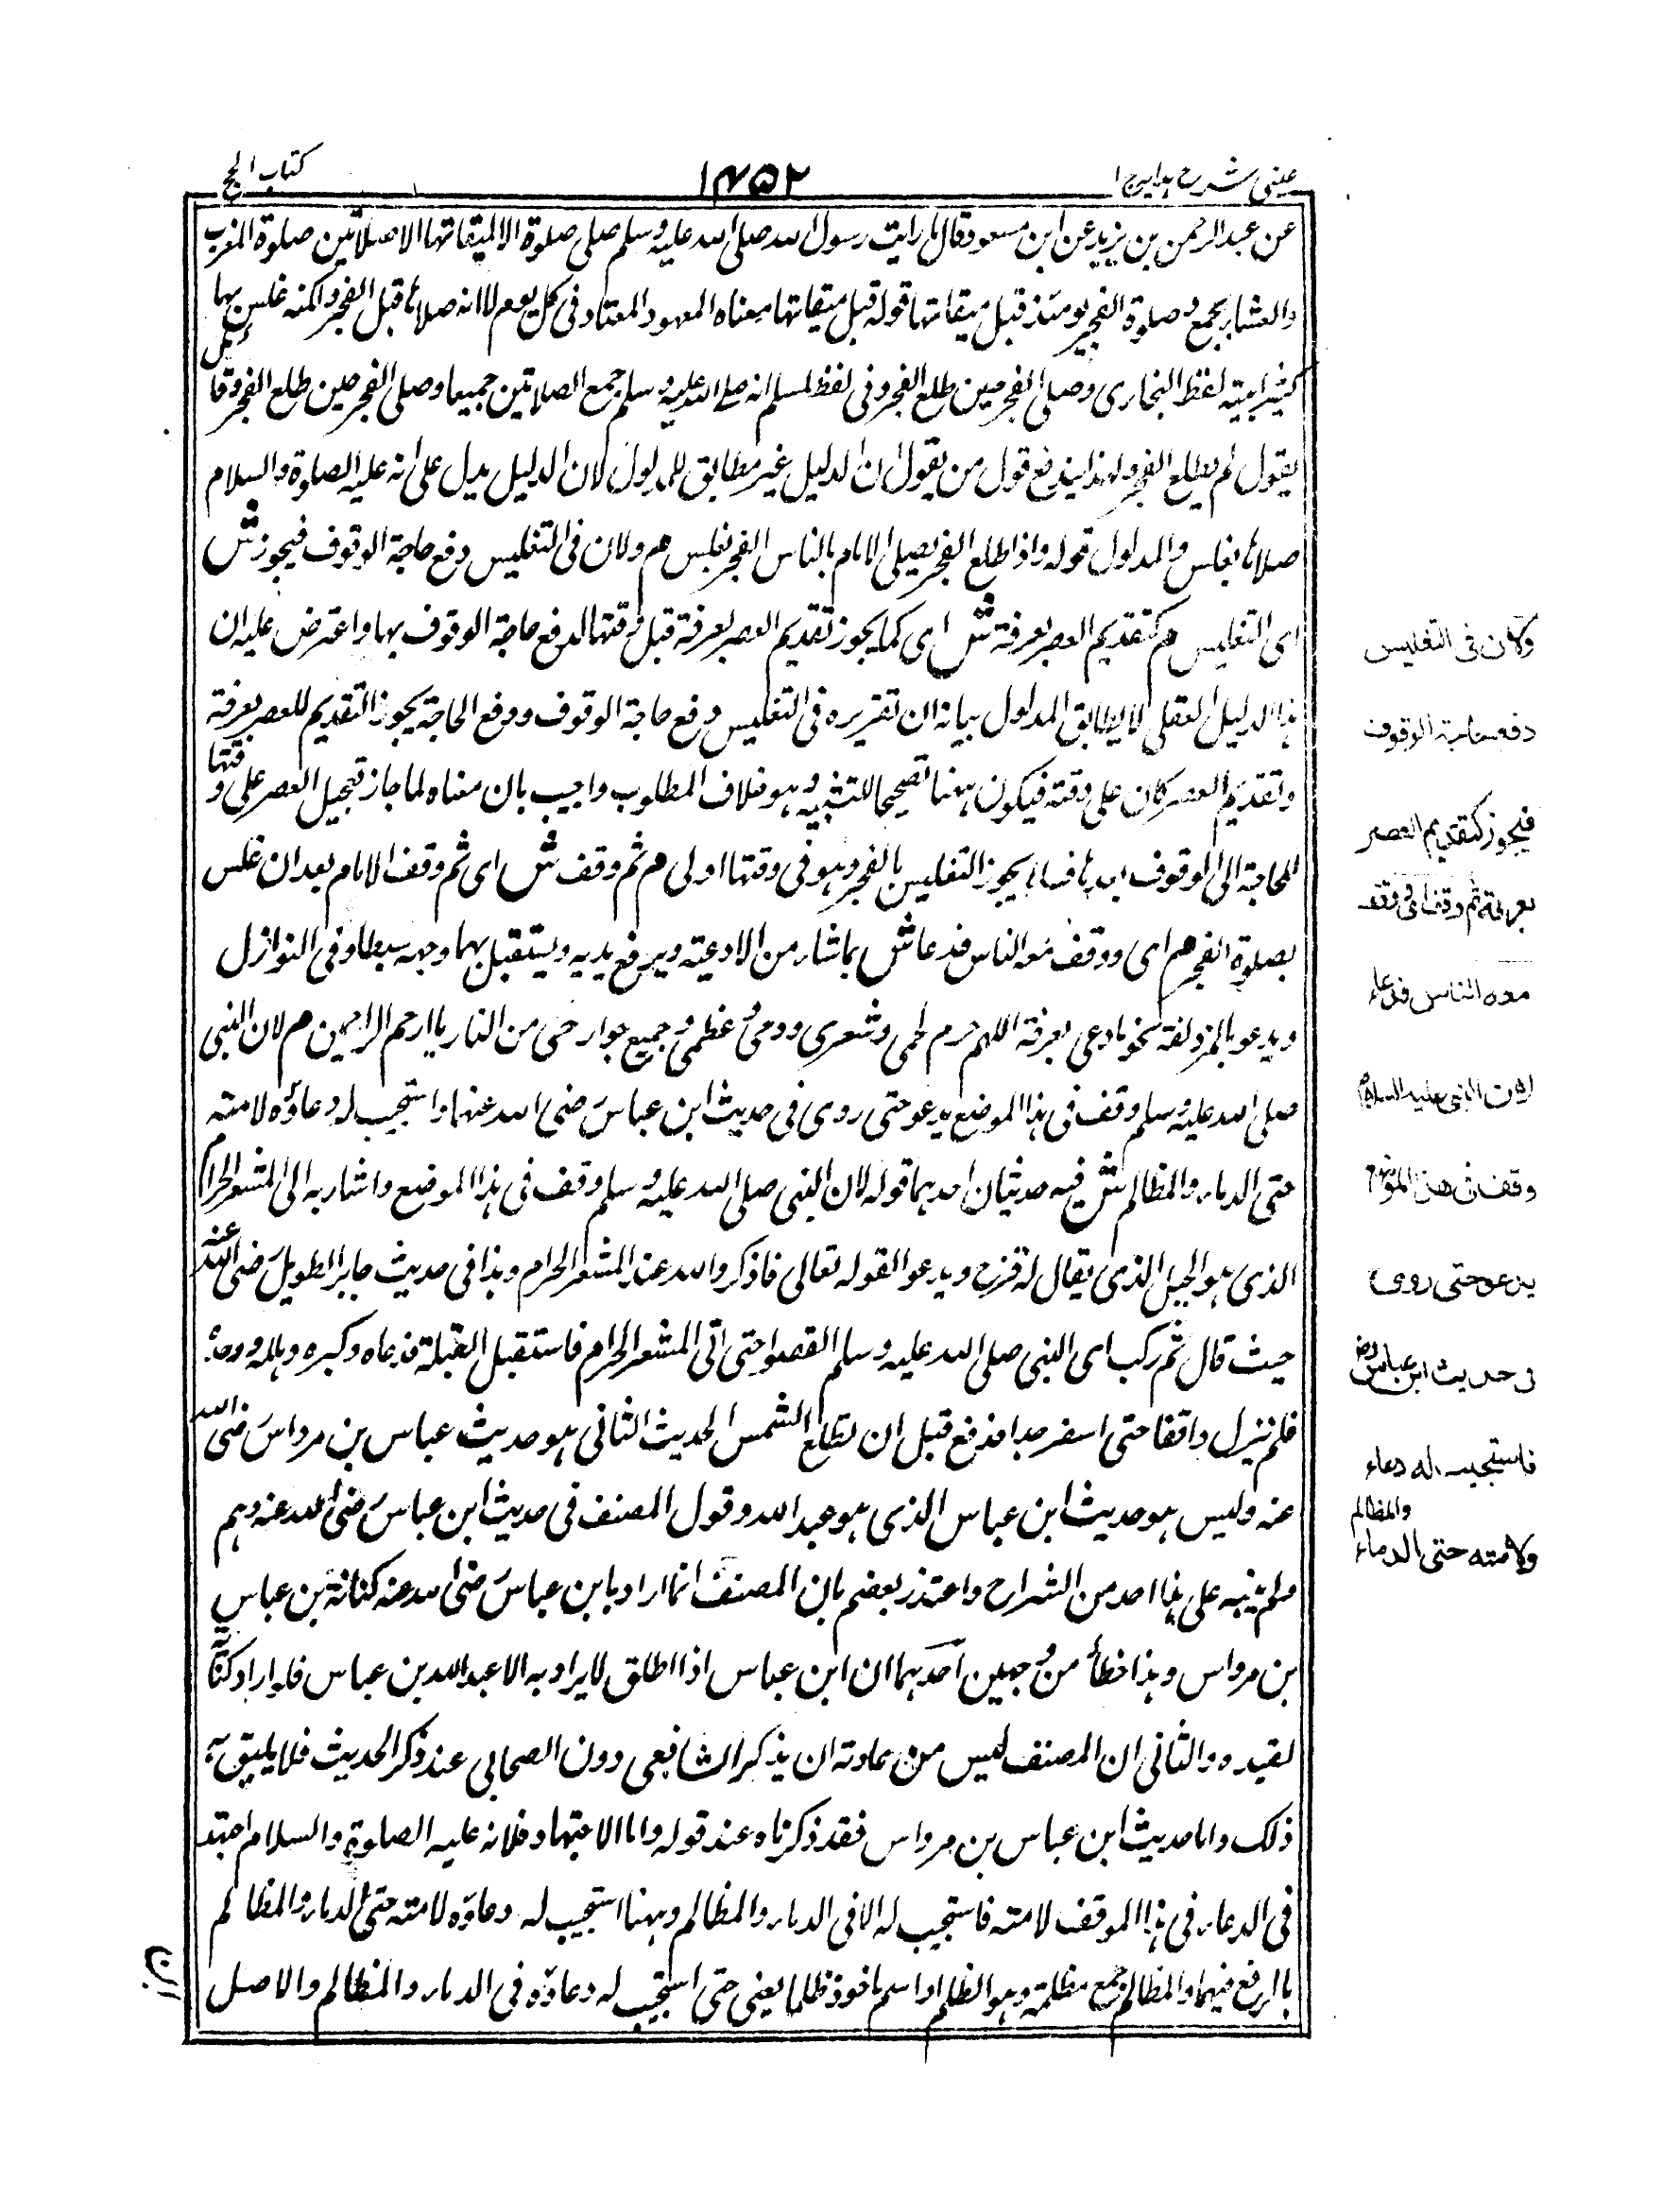 عینی شرح ہدایہ ج ا
۱۴۵۲
کتاب الحج
عن عبدالرحمن بن یزید عن ابن مسعود قال ما رایت رسول اللہ صلی اللہ علیہ وسلم صلی صلوۃ الا لمیقاتہا الا صلاتین صلوۃ المغرب
والعشاء بجمع وصلوۃ الفجر یومئذ قبل میقاتہا قولہ قبل میقاتہا معناہ المعہود المعتاد فی کل یوم لا انہ صلاہا قبل الفجر ولکنہ غلس بہا
لفظ البخاری وصلی الفجر حین طلع الفجر وفی لفظ لمسلم انہ صلی اللہ علیہ وسلم جمع الصلاتین جمیعا وصلی الفجر حین طلع الفجر وقائل
یقول لم یطلع الفجر ولہذا یندفع قول من یقول ان الدلیل غیر مطابق للمدلول لان الدلیل یدل علی انہ علیہ الصلوۃ والسلام
صلاہا بغلس والمدلول قولہ واذا طلع الفجر یصلی الامام بالناس الفجر بغلس م ولان فی التغلیس دفع حاجۃ الوقوف فیجوز ش
ای التغلیس م کتقدیم العصر بعرفۃ ش ای کما یجوز تقدیم العصر بعرفۃ قبل وقتہا لدفع حاجۃ الوقوف بہا واعترض علیہ ان
ہذا الدلیل العقلی لا یطابق المدلول بیانہ ان تقریرہ فی التغلیس دفع حاجۃ الوقوف ودفع الحاجۃ یجوز التقدیم للعصر بعرفۃ
وتقدیم العصر کان علی وقتہ فیکون ہہنا تصحیحا للتشبیہ وہو خلاف المطلوب واجیب بان معناہ لما جاز تعجیل العصر علی وقتہا
للحاجۃ الی الوقوف یجوز التغلیس بالفجر وہو فی وقتہا اولی م ثم وقف ش ای ثم وقف الامام بعد ان غلس
بصلوۃ الفجر م ای ووقف معہ الناس فدعا ش بما شاء من الادعیۃ ویرفع یدیہ ویستقبل بہما وجہہ بسطا وفی النوازل
ویدعو بالمزدلفۃ نحو ما دعی بعرفۃ اللہم حرم لحمی وشعری ودمی وعظمی وجمیع جوارحی من النار یا ارحم الراحمین م لان النبی
صلی اللہ علیہ وسلم وقف فی ہذا الموضع یدعو حتی روی فی حدیث ابن عباس رضی اللہ عنہما واستجیب لہ دعاؤہ لامتہ
حتی الدماء والمظالم ش فیہ حدیثان احدہما قولہ لان النبی صلی اللہ علیہ وسلم وقف فی ہذا الموضع واشار بہ الی المشعر الحرام
الذی ہو الجبل الذی یقال لہ قزح ویدعو لقولہ تعالی فاذکروا اللہ عند المشعر الحرام وہذا فی حدیث جابر الطویل رضی اللہ عنہ
حیث قال ثم رکب ای النبی صلی اللہ علیہ وسلم القصوا حتی اتی المشعر الحرام فاستقبل القبلۃ فدعاہ وکبرہ وہللہ ووحدہ
فلم یزل واقفا حتی اسفر جدا فدفع قبل ان تطلع الشمس الحدیث الثانی ہو حدیث عباس بن مرداس رضی اللہ
عنہ ولیس ہو حدیث ابن عباس الذی ہو عبداللہ وقول المصنف فی حدیث ابن عباس رضی اللہ عنہ وہم
ولم ینبہ علی ہذا احد من الشراح واعتذر بعضہم بان المصنف انما اراد بابن عباس رضی اللہ عنہ کنانۃ بن عباس
بن مرداس وہذا خطأ من وجہین احدہما ان ابن عباس اذا اطلق لا یراد بہ الا عبداللہ بن عباس فلو اراد کنانۃ
لقیدہ والثانی ان المصنف لیس من عادتہ ان یذکر الشافعی دون الصحابی عند ذکر الحدیث فلا یلیق بہ
ذلک واما حدیث ابن عباس بن مرداس فقد ذکرناہ عند قولہ واما الاجتہاد فلانہ علیہ الصلوۃ والسلام اجتہد
فی الدعاء فی ہذا الموقف لامتہ فاستجیب لہ الا فی الدماء والمظالم وہہنا استجیب لہ دعاؤہ لامتہ حتی الدماء والمظالم
بالرفع فیہما والمظالم جمع مظلمۃ وہو الظلم او اسم ماخوذ ظلما یعنی حتی استجیب لہ دعاؤہ فی الدماء والمظالم والاصل
ولان فی التغلیس
دفع حاجۃ الوقوف
فیجوز کتقدیم العصر
بعرفۃ ثم وقف ووقف
معه الناس فدعاء
لان النبی علیہ السلام
وقف فی هذا الموضع
یدعو حتی روی
فی حدیث ابن عباس رض
فاستجیب له دعاء
والمظالم
ولامته حتی الدماء